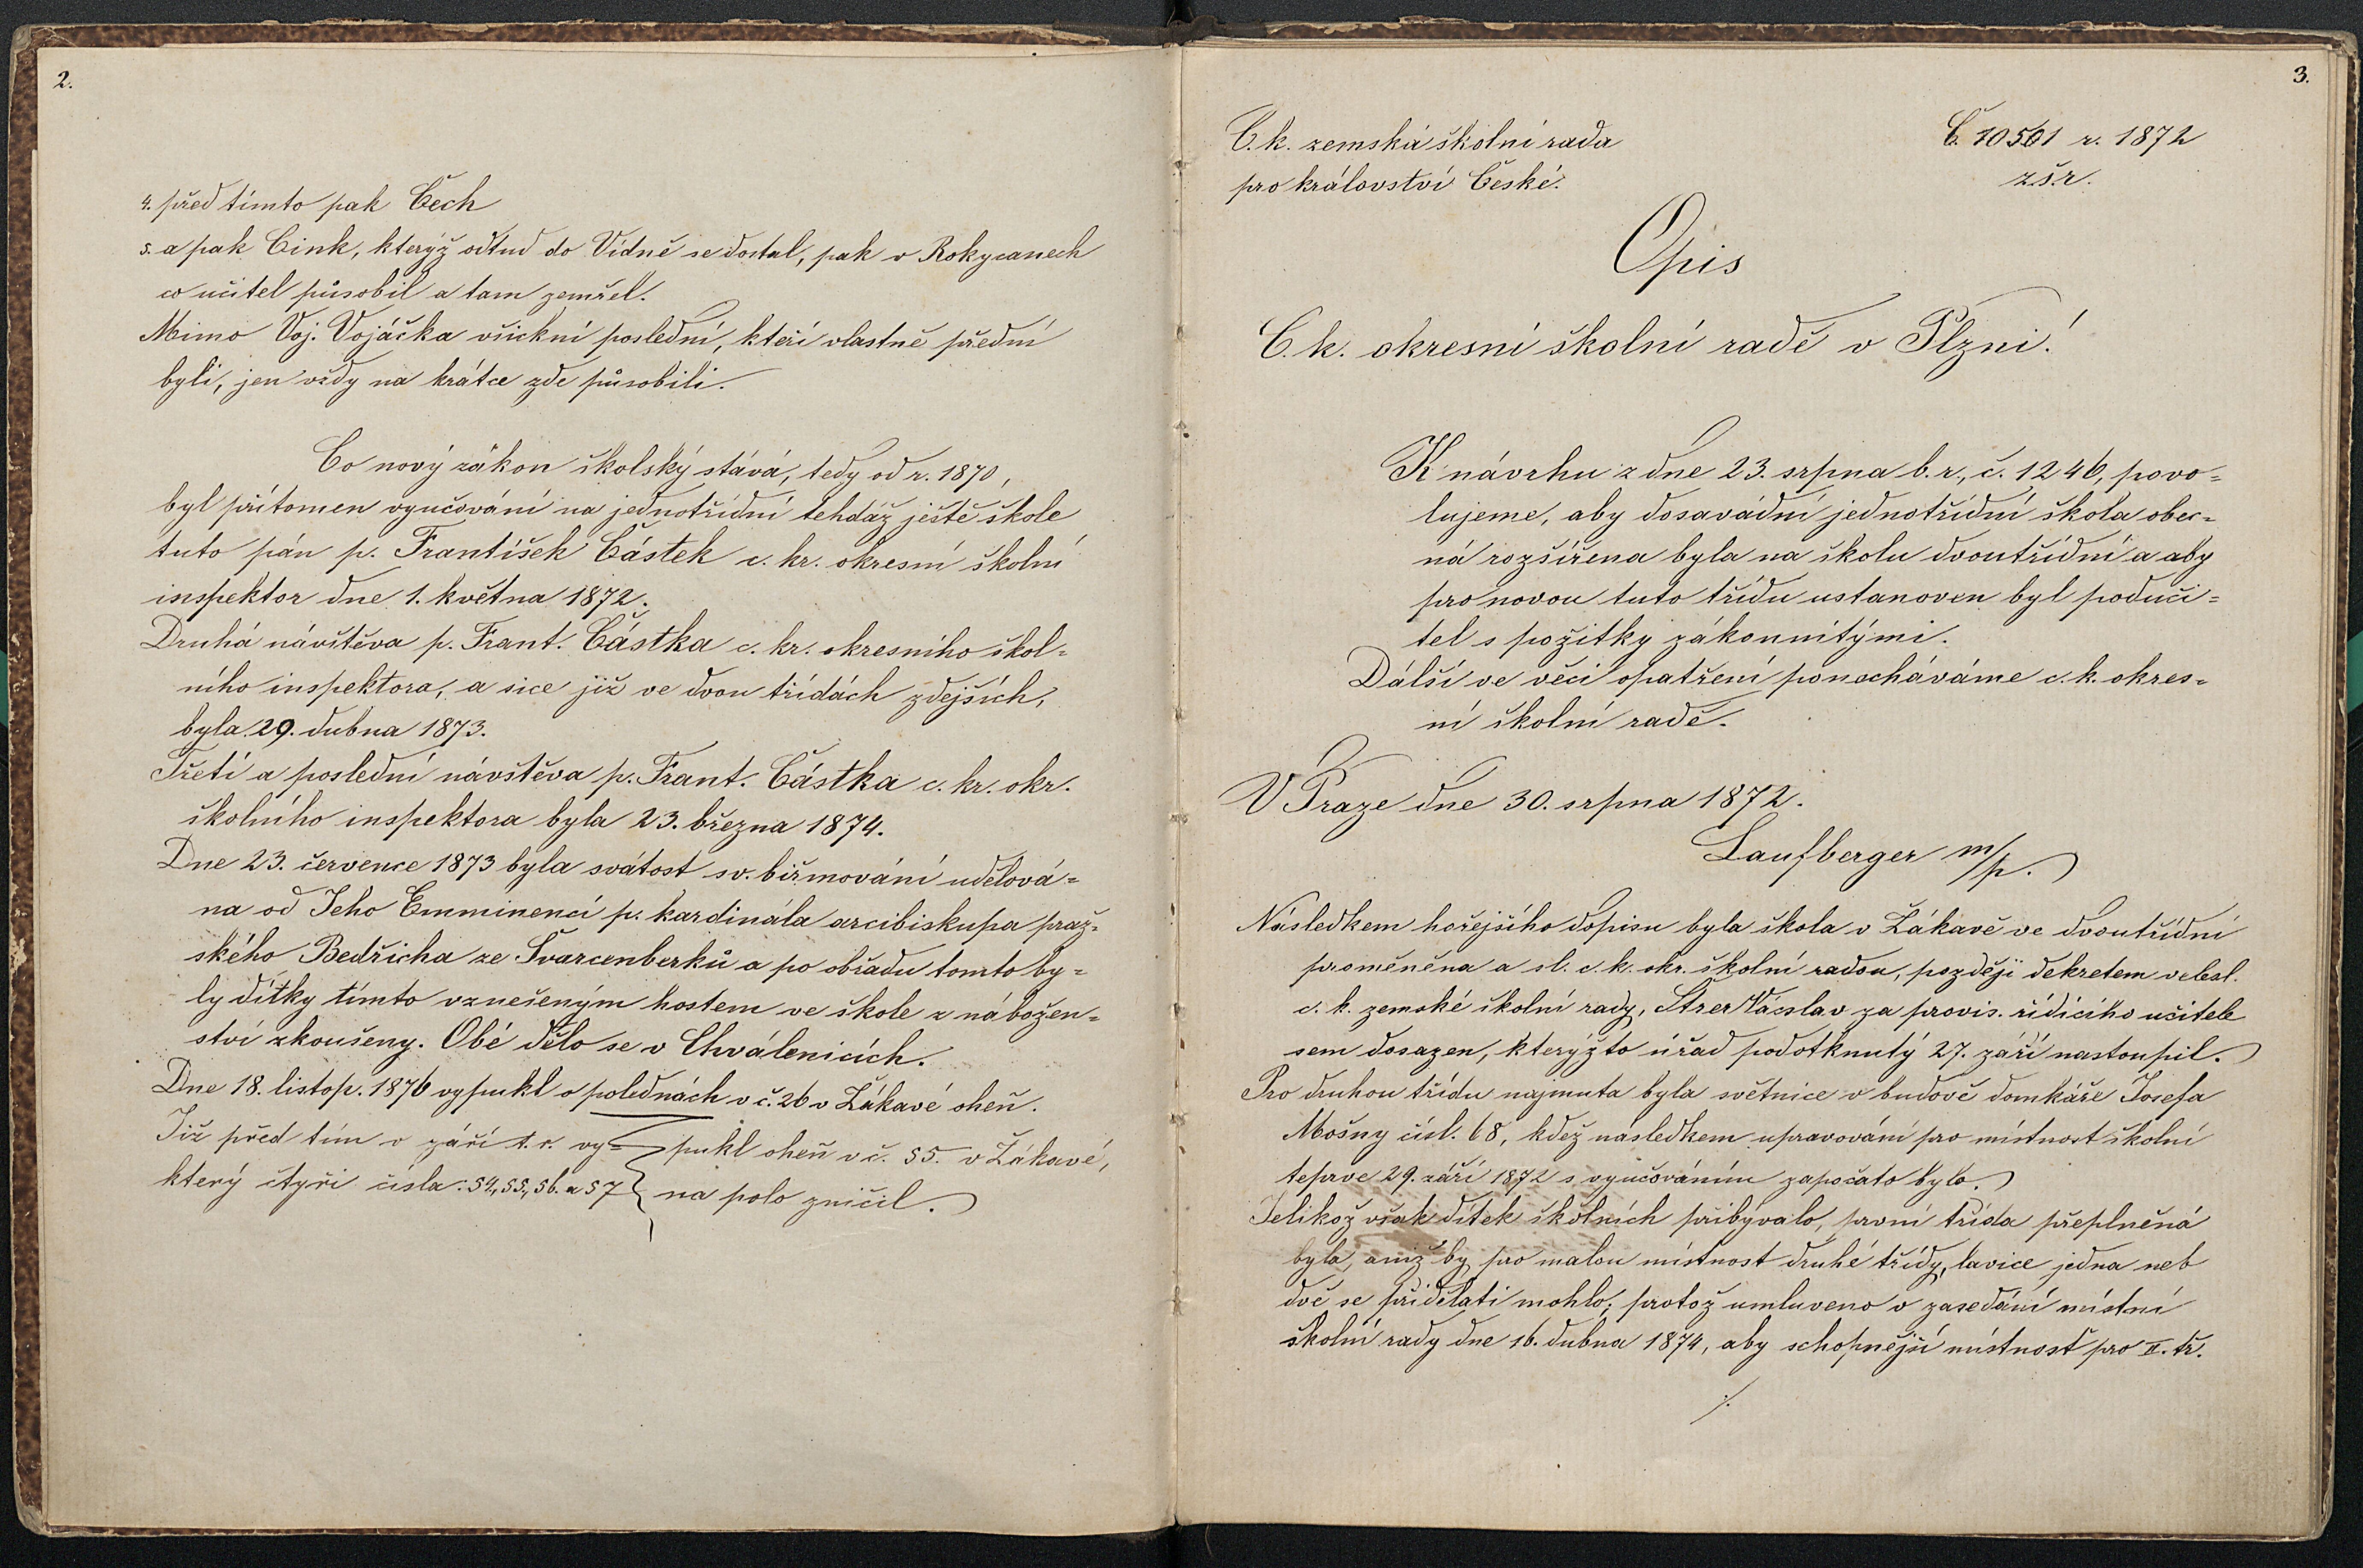 2.
4. před tímto pak Čech
5. a pak Cink, kterýž odtud do Vídně se dostal, pak v Rokycanech
co učitel působil a tam zemřel.
Mimo Voj. Vojáčka všickni poslední, kteří vlastně přední
byli, jen vždy na krátce zde působili.
Co nový zákon školský stává, tedy od r. 1870,
byl přítomen vyučování na jednotřídní tehdáž ještě škole
tuto pán p. František Částek c. kr. okresní školní
inspektor dne 1. května 1872.
Druhá návštěva p. Frant. Částka c. kr. okresního škol=
ního inspektora, a sice již ve dvou třídách zdejších,
byla 29. dubna 1873.
Třetí a poslední návštěva p. Frant. Částka c. kr. okr.
školního inspektora byla 23. března 1874.
Dne 23. července 1873 byla svátost sv. biřmování udělová=
na od Jeho Emminencí p. kardinála arcibiskupa praž=
ského Bedřicha ze Švarcenberků a po obřadu tomto by=
ly dítky tímto vznešeným hostem ve škole z nábožen=
ství zkoušeny. Obé dělo se v Chválenicích.
Dne 18. listop. 1876 vypukl o polednách v č. 26 v Žákavé oheň.
Již před tím v září t. r. vy= pukl oheň v č. 55. v Žákavé,
který čtyři čísla: 54., 55., 56. a 57 na polo zničil.
3.
C. k. zemská školní rada
Č. 10561 r. 1872
pro království České.
z.š.r.
Opis
C. k. okresní školní radě v Plzni!
K návrhu z dne 23. srpna b. r., č. 1246, povo=
lujeme, aby dosavádní jednotřídní škola obec=
ná rozšířena byla na školu dvoutřídní a aby
pro novou tuto třídu ustanoven byl poduči=
tel s požitky zákonnitými.
Dálší ve věci opatření ponecháváme c. k. okres=
ní školní radě.
V Praze dne 30. srpna 1872.
Laufberger m/p.
Následkem hořejšího dopisu byla škola v Žákavě ve dvoutřídní
proměněna a sl. c. k. okr. školní radou, později dekretem velesl.
c. k. zemské školní rady, Štrer Václav za provis. řídícího učitele
sem dosazen, kterýžto úřad podotknutý 27. září nastoupil.
Pro druhou třídu najmuta byla světnice v budově domkáře Josefa
Mošny čísl. 68, kdež následkem upravování pro místnost školní
teprve 29. září 1872 s vyučováním započato bylo.
Jelikož však dítek školních přibývalo, první třída přeplněná
byla, aniž by pro malou místnost druhé třídy, lavice jedna neb
dvě se přidělati mohlo; protož umluveno v zasedání místní
školní rady dne 16. dubna 1874, aby schopnější místnost pro II. tř.
./.